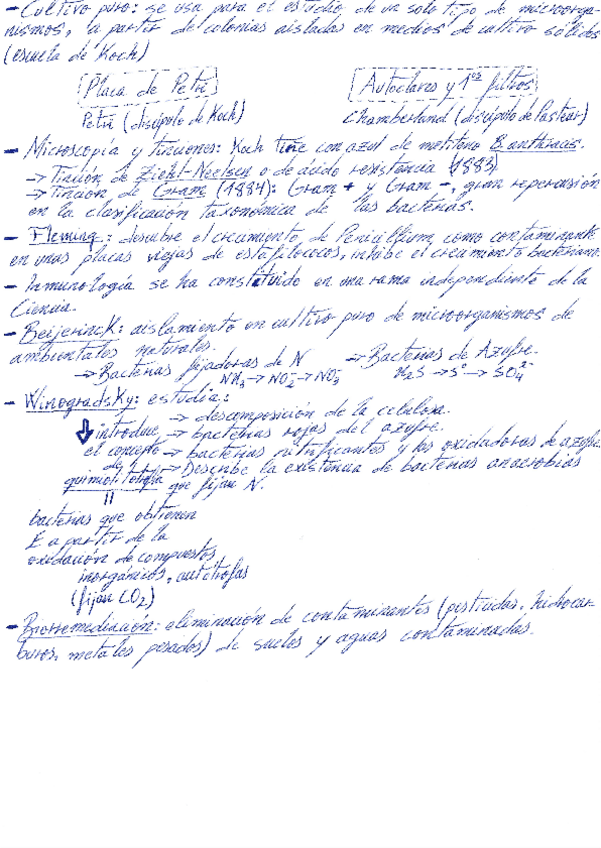 - Cultivo puro: se usa para el estudio de un solo tipo de microorga-
nismos, a partir de colonias aisladas en medios de cultivo sólidos
(escuela de Koch)
Placa de Petri
Autoclaves y 1ºs filtros
Petri (discípulo de Koch)
Chamberland (discípulo de Pasteur)
- Microscopía y tinciones: Koch tiñe con azul de metileno B. anthracis.
→ Tinción de Ziehl-Neelsen o de ácido resistencia (1883)
→ Tinción de Gram (1884): Gram + y Gram -, gran repercusión
en la clasificación taxonómica de las bacterias.
- Fleming: descubre el crecimiento de Penicillium como contaminante
en unas placas viejas de estafilococos, inhibe el crecimiento bacteriano
- Inmunología se ha constituido en una rama independiente de la
Ciencia.
- Beijerinck: aislamiento en cultivo puro de microorganismos de
ambientales naturales.
→ Bacterias fijadoras de N
→ Bacterias de Azufre.
NH₃ → NO₂⁻ → NO₃⁻
H₂S → S° → SO₄²⁻
- Winogradsky: estudia:
→ descomposición de la celulosa.
introduce → bacterias rojas del azufre.
el concepto → bacterias nitrificantes y las oxidadoras de azufre
de → Describe la existencia de bacterias anaerobias
quimiolitotrofia que fijan N.
=
bacterias que obtienen
E a partir de la
oxidación de compuestos
inorgánicos, autótrofas
(fijan CO₂)
- Biorremediación: eliminación de contaminantes (pisticidas, hidrocar-
buros, metales pesados) de suelos y aguas contaminadas.